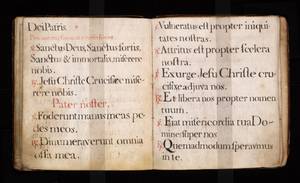 Dei Patris.
℟. Sanctus Deus, Sanctus fortis,
Sanctus & immortalis, miserere
nobis.
℣. Jesu Christe Crucifixe mise-
rere nobis.
Pater noster.
℣. Foderunt manus meas pe-
des meos.
℟. Dinumeraverunt omnia
ossa mea.
Vulneratus est propter iniqui-
tates nostras.
℟. Atritus est propter scelera
nostra.
℣. Exurge Jesu Christe cru-
cifixe adjuva nos.
℟. Et libera nos propter nomen
tuum.
℣. Fiat misericordia tua Do-
mine super nos
℟. Quemadmodum speravimus
in te.